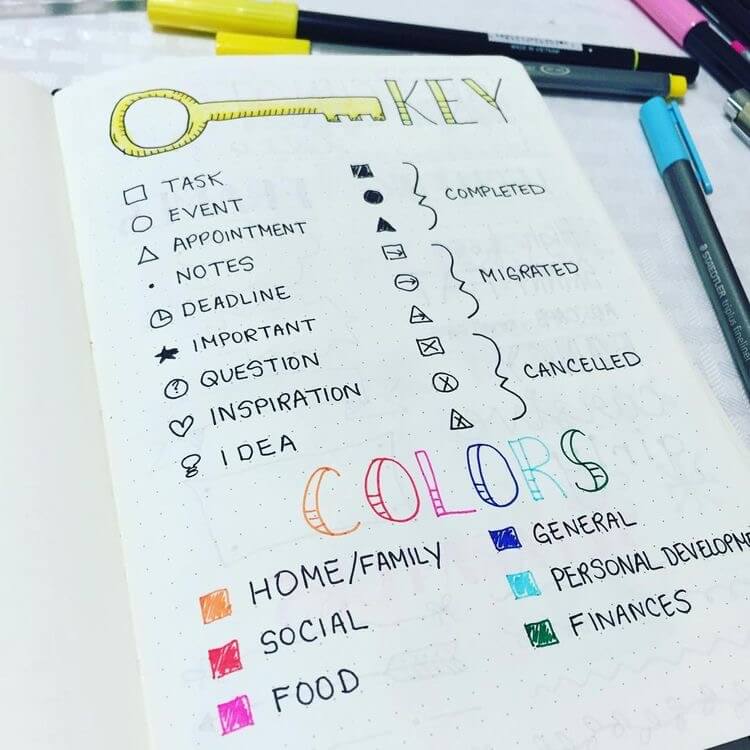 KEY
TASK
EVENT
APPOINTMENT
NOTES
DEADLINE
IMPORTANT
QUESTION
INSPIRATION
IDEA
COMPLETED
MIGRATED
CANCELLED
COLORS
HOME/FAMILY
SOCIAL
FOOD
GENERAL
PERSONAL DEVELOPME
FINANCES
STAEDTLER triplus fineliner